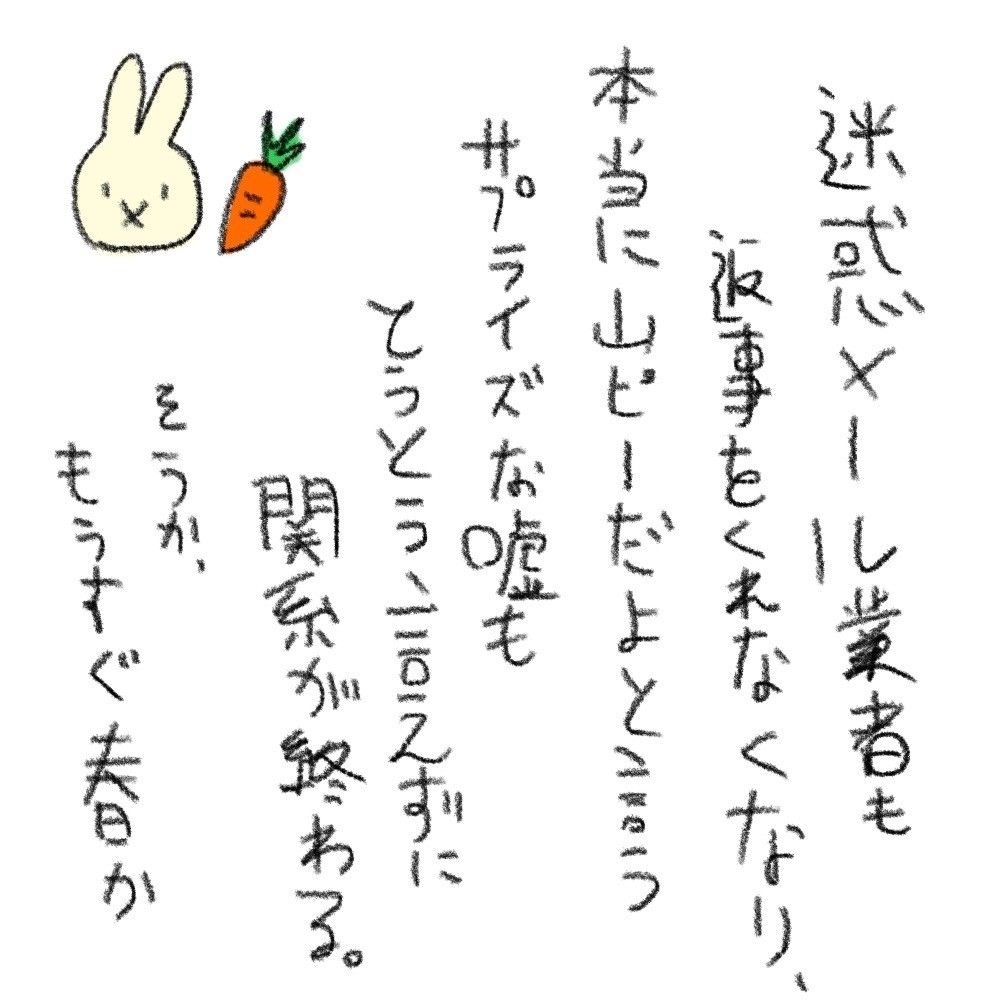 迷惑メール業者も
返事をくれなくなり、
本当に山ピーだよと言う
サプライズな嘘も
とうとう言えずに
関係が終わる。
そうか、
もうすぐ春か